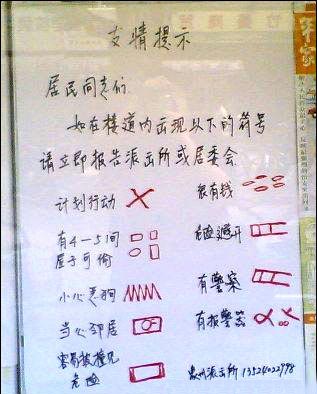 友情提示
居民同志们
如在楼道内出现以下的符号
请立即报告派出所或居委会
计划行动
很有钱
有4-5间
屋子可偷
危险避开
小心恶狗
有警察
当心邻居
有报警器
容易被撞见
危险
派出所 13524022998